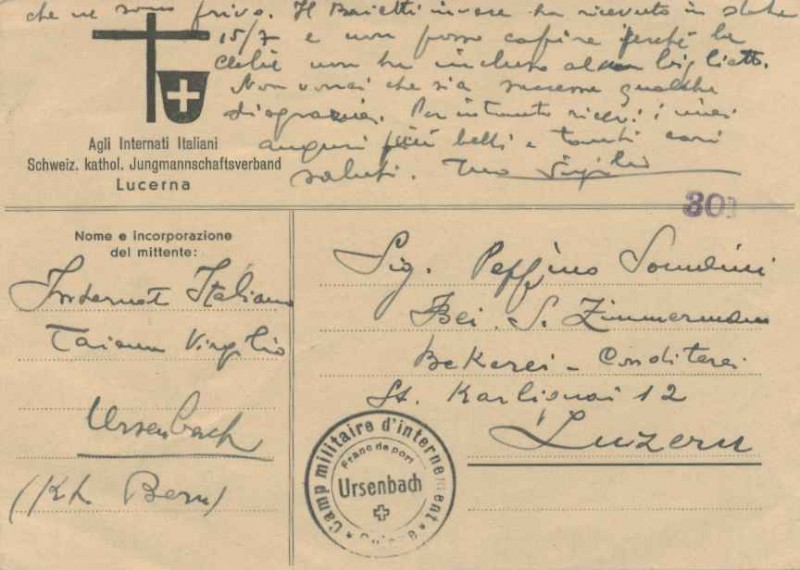 che ne sono privo. Il Baietti invece ha ricevuto in data
15/7 e non posso capire perché la
Clelie non ha incluso alcun biglietto.
Non vorrei che sia successa qualche
disgrazia. Per intanto ricevi i miei
auguri più belli e tanti cari
saluti. Tuo Virgilio
Agli Internati Italiani
Schweiz. kathol. Jungmannschaftsverband
Lucerna
Nome e incorporazione
del mittente:
Internat Italiano
Taiana Virgilio
Ursenbach
(Kt. Bern)
Sig. Peppino
Bei S. Zimmermann
Bekerei - Conditerei
St. Karliquai 12
Luzern
Camp militaire d'internement
Franc de port
Ursenbach